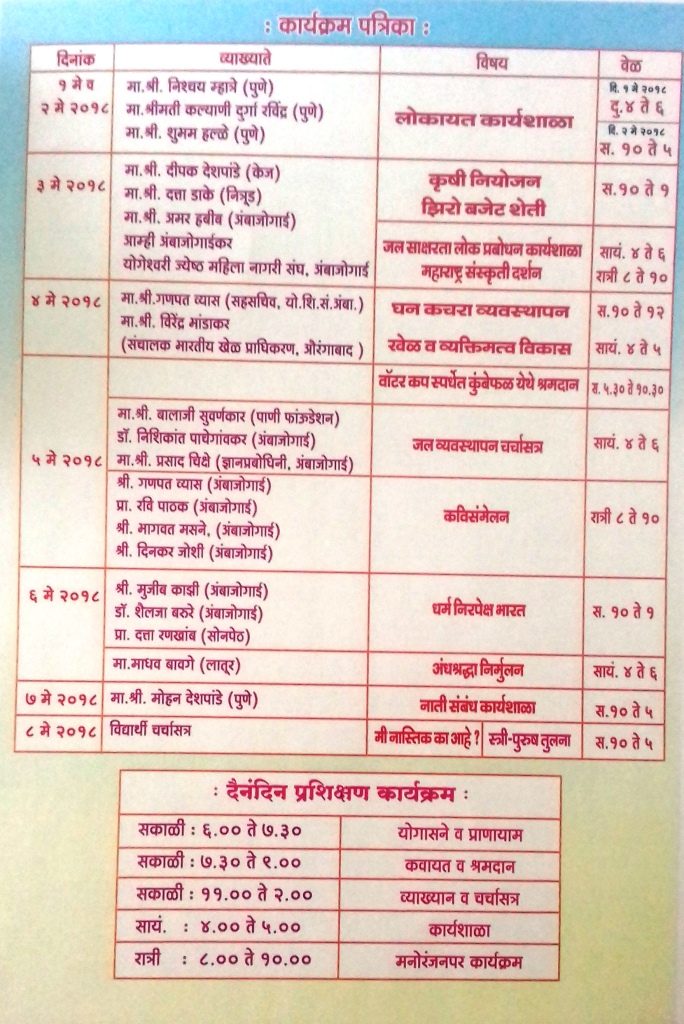 : कार्यक्रम पत्रिका :
दिनांक व्याख्याते विषय वेळ
१ मे व
२ मे २०१८
मा.श्री. निश्चय म्हात्रे (पुणे)
मा.श्रीमती कल्याणी दुर्गा रविंद्र (पुणे)
मा.श्री. शुभम हल्ळे (पुणे)
लोकायत कार्यशाळा
दि. १ मे २०१८
दु.४ ते ६
दि. २ मे २०१८
स. १० ते ५
३ मे २०१८
मा.श्री. दीपक देशपांडे (केज)
मा.श्री. दत्ता डाके (नित्रूड)
मा.श्री. अमर हबीब (अंबाजोगाई)
आम्ही अंबाजोगाईकर
योगेश्वरी ज्येष्ठ महिला नागरी संघ, अंबाजोगाई
कृषी नियोजन
झिरो बजेट शेती
स.१० ते १
जल साक्षरता लोक प्रबोधन कार्यशाळा
महाराष्ट्र संस्कृती दर्शन
सायं. ४ ते ६
रात्री ८ ते १०
४ मे २०१८
मा.श्री.गणपत व्यास (सहसचिव, यो.शि.सं.अंबा.)
मा.श्री. विरेंद्र भांडाकर
(संचालक भारतीय खेळ प्राधिकरण, औरंगाबाद )
घन कचरा व्यवस्थापन
खेळ व व्यक्तिमत्व विकास
स.१० ते १२
सायं. ४ ते ५
५ मे २०१८
वॉटर कप स्पर्धेत कुंबेफळ येथे श्रमदान
स. ५.३० ते १०.३०
मा.श्री. बालाजी सुवर्णकार (पाणी फांऊडेशन)
डॉ. निशिकांत पाचेगांवकर (अंबाजोगाई)
मा.श्री. प्रसाद चिक्षे (ज्ञानप्रबोधिनी, अंबाजोगाई)
जल व्यवस्थापन चर्चासत्र
सायं. ४ ते ६
श्री. गणपत व्यास (अंबाजोगाई)
प्रा. रवि पाठक (अंबाजोगाई)
श्री. भागवत मसने, (अंबाजोगाई)
श्री. दिनकर जोशी (अंबाजोगाई)
कविसंमेलन
रात्री ८ ते १०
६ मे २०१८
श्री. मुजीब काझी (अंबाजोगाई)
डॉ. शैलजा बरुरे (अंबाजोगाई)
प्रा. दत्ता रणखांब (सोनपेठ)
धर्म निरपेक्ष भारत
स. १० ते १
मा.माधव बावगे (लातूर)
अंधश्रद्धा निर्मुलन
सायं. ४ ते ६
७ मे २०१८ मा.श्री. मोहन देशपांडे (पुणे) नाती संबंध कार्यशाळा स.१० ते ५
८ मे २०१८ विद्यार्थी चर्चासत्र मी नास्तिक का आहे ? स्त्री-पुरुष तुलना स.१० ते ५
: दैनंदिन प्रशिक्षण कार्यक्रम :
सकाळी : ६.०० ते ७.३० योगासने व प्राणायाम
सकाळी : ७.३० ते ९.०० कवायत व श्रमदान
सकाळी : ११.०० ते २.०० व्याख्यान व चर्चासत्र
सायं. : ४.०० ते ५.०० कार्यशाळा
रात्री : ८.०० ते १०.०० मनोरंजनपर कार्यक्रम